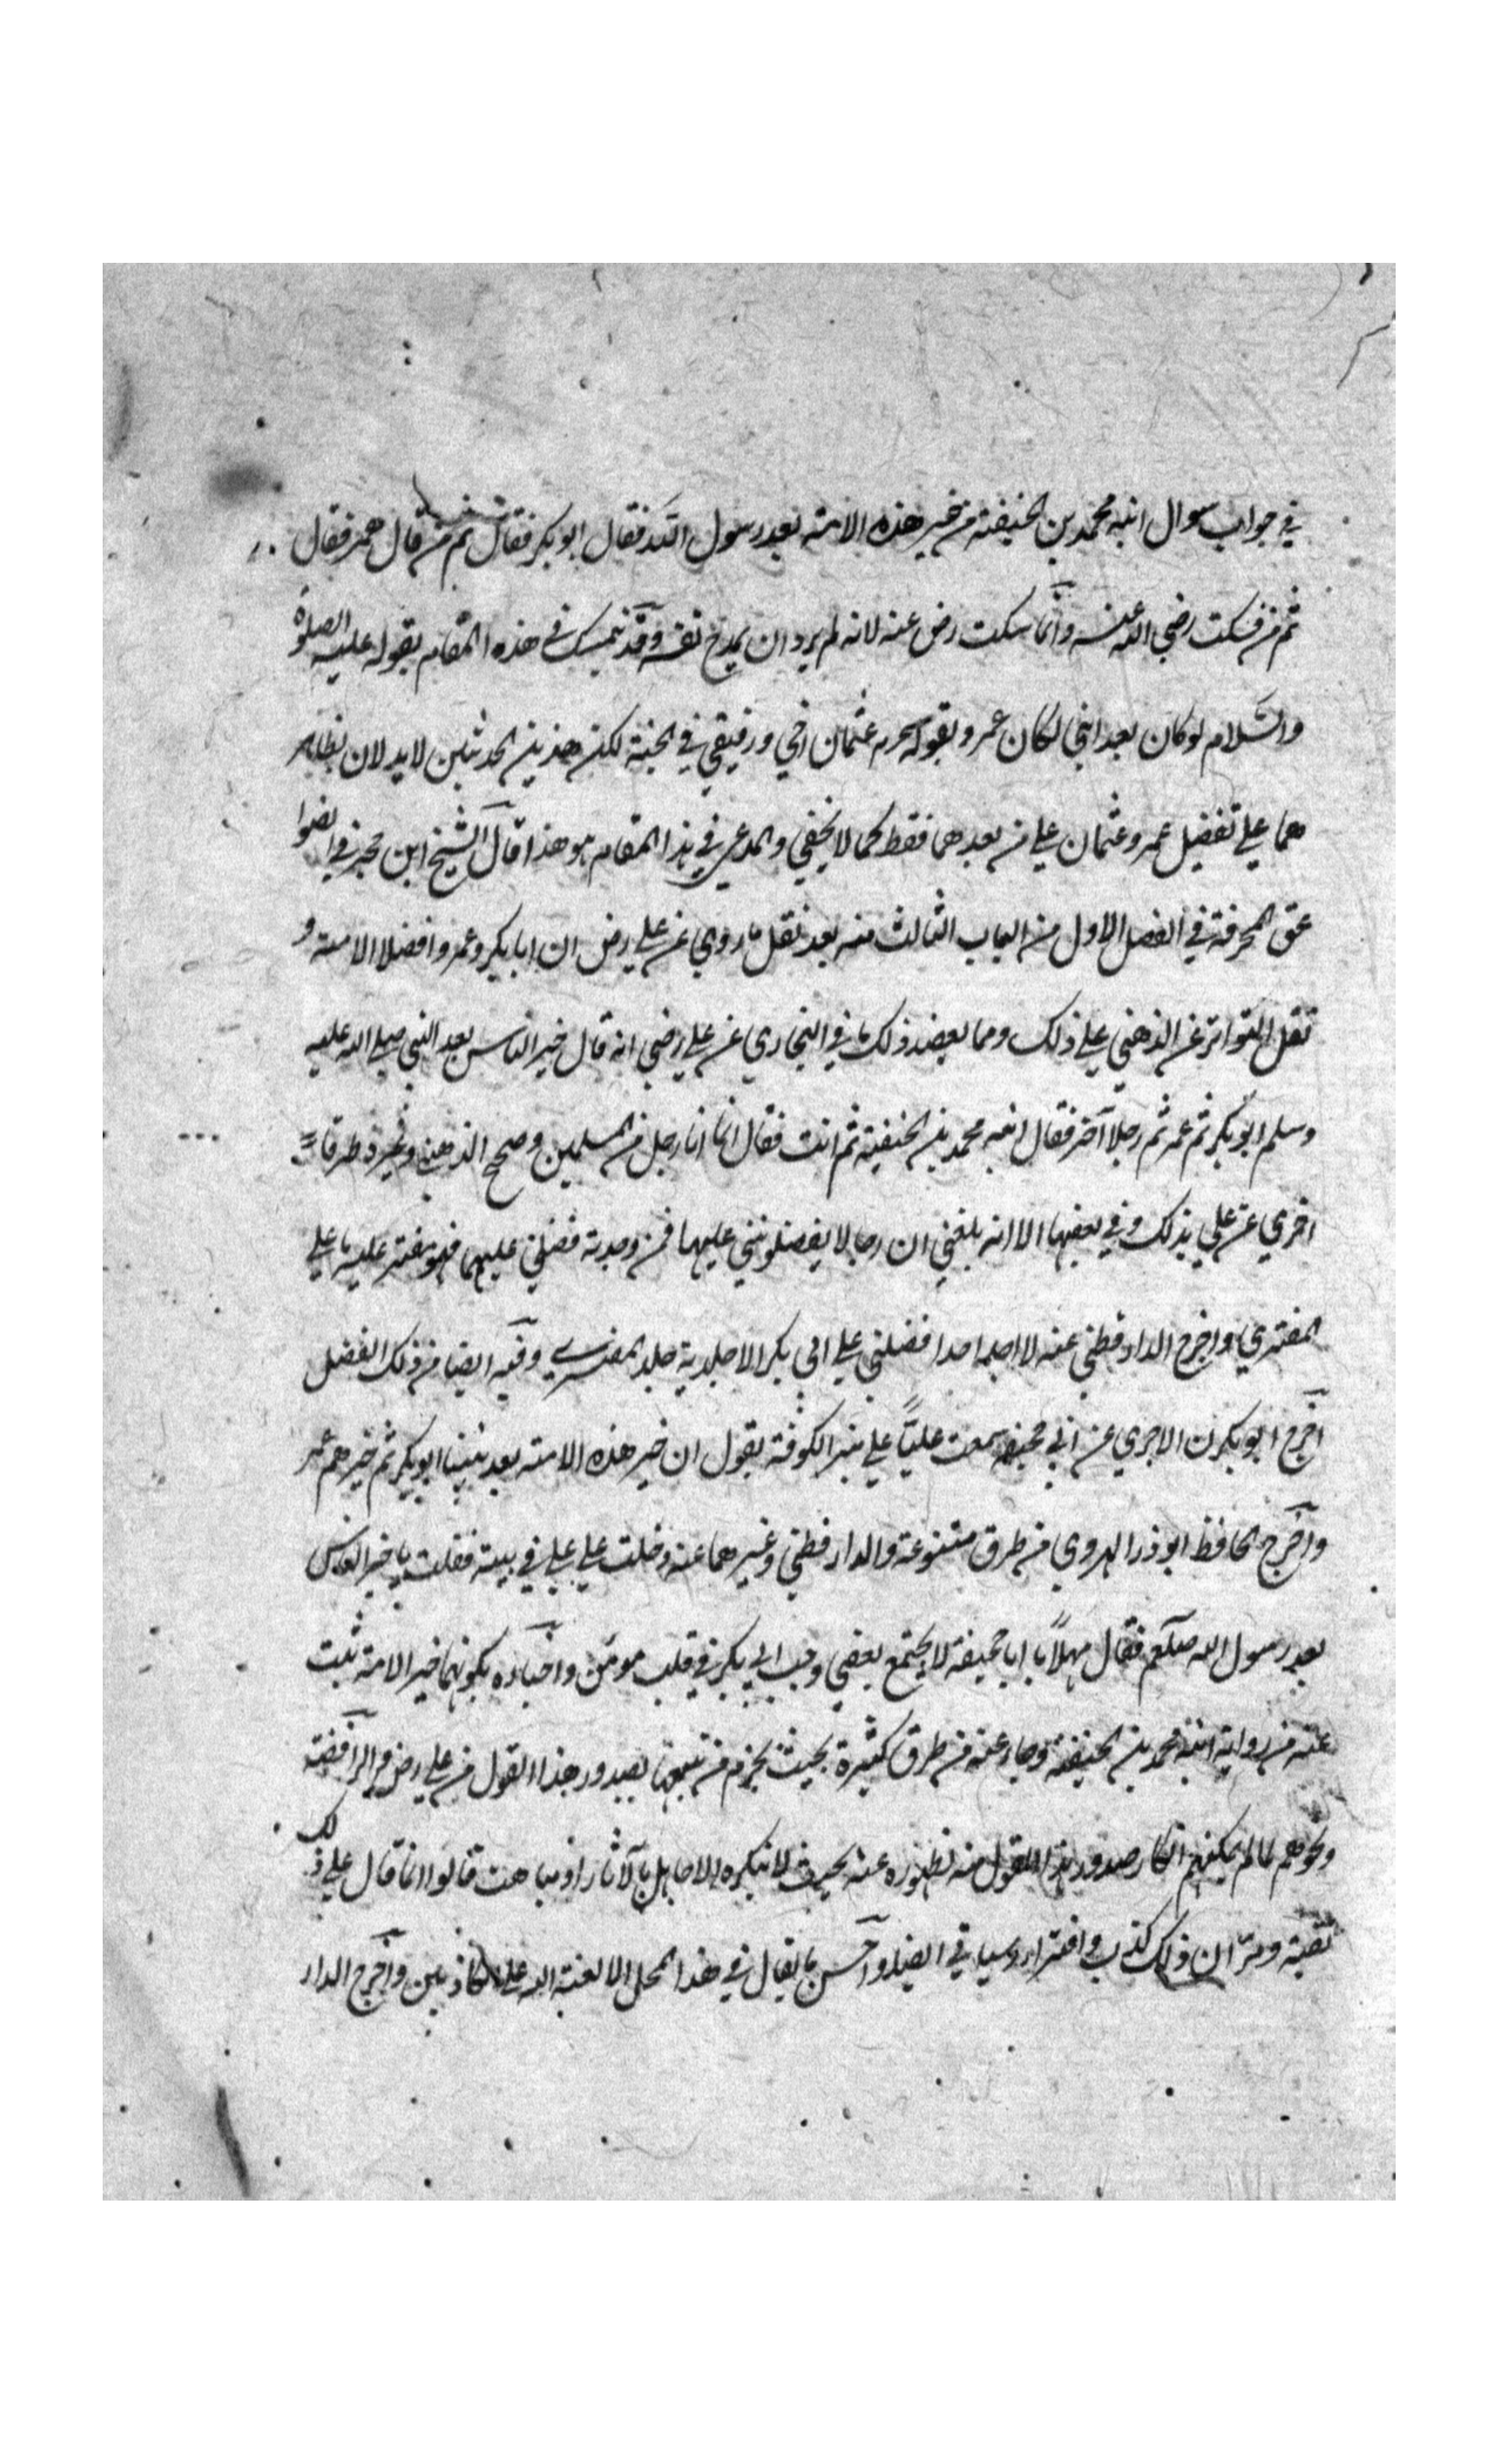 في جواب سوال ابنه محمد بن الحنيفة من خير هذه الامة بعد رسول الله فقال ابو بكر فقال ثم من قال عمر فقال
ثم من فسكت رضي الله عنه وانما سكت رض عنه لانه لم يرد ان يمدح نفسه وقد تمسك في هذه المقام بقوله عليه الصلوة
والسلام لو كان بعدي نبي لكان عمر وبقوله عثمان اخي ورفيقي في الجنة لكن هذين الحديثين لا يدلان بظاهر
هما علي تفضيل عمر وعثمان علي من بعدهما فقط كما لا يخفي والمدعي في هذا المقام هو هذا قال الشيخ ابن حجر في الصوا
عق المحرقة في الفصل الاول من الباب الثالث منه بعد نقل ما روي عن علي رض ان ابا بكر وعمر افضلا الامة و
نقل التواتر عن الذهبي علي ذلك ومما يعضد ذلك ما في البخاري عن علي رضي انه قال خير الناس بعد النبي صلي الله عليه
وسلم ابو بكر ثم عمر ثم رجلا آخر فقال ابنه محمد بن الحنفية ثم انت فقال انما انا رجل من المسلمين وصحح الذهبي وغيره طرقا
اخري عن علي بذلك وفي بعضها الا انه بلغني ان رجالا يفضلونني عليهما فمن وجدته فضلني عليهما فهو مفتر عليه ما علي
المفتري واخرج الدارقطني عنه لا اجد احدا فضلني علي ابي بكر الا جلدته جلد المفتري وفيه ايضا من ذلك الفضل
اخرج ابو بكرن الاجري عن ابي جحيفة سمعت عليّاً علي منبر الكوفة يقول ان خير هذه الامة بعد نبينا ابو بكر ثم خيرهم عمر
واخرج الحافظ ابو ذر الهروي من طرق متنوعة والدارقطني وغيرهما عنه دخلت علي علي في بيته فقلت يا خير الناس
بعد رسول الله صلعم فقال مهلاً يا ابا جحيفة لا يجتمع بغضي وحب ابي بكر في قلب مومن واخباره بكونهما خير الامة ثبت
عنه من رواية ابنه محمد بن الحنيفة وجاء عنه من طرق كثيرة بحيث يجزم من تتبعها بصدور هذا القول من علي رض والرافضة
ونحوهم لما لم يمكنهم انكار صدور هذا القول منه لظهوره عنه بحيث لا ينكره الا جاهل بالآثار او مباهت قالوا انما قال علي ذلك
تقية ومرّ ان ذلك كذب وافتراء وسياتي ايضا واحسن ما يقال في هذا المحل الا لعنة الله علي الكاذبين واخرج الدار